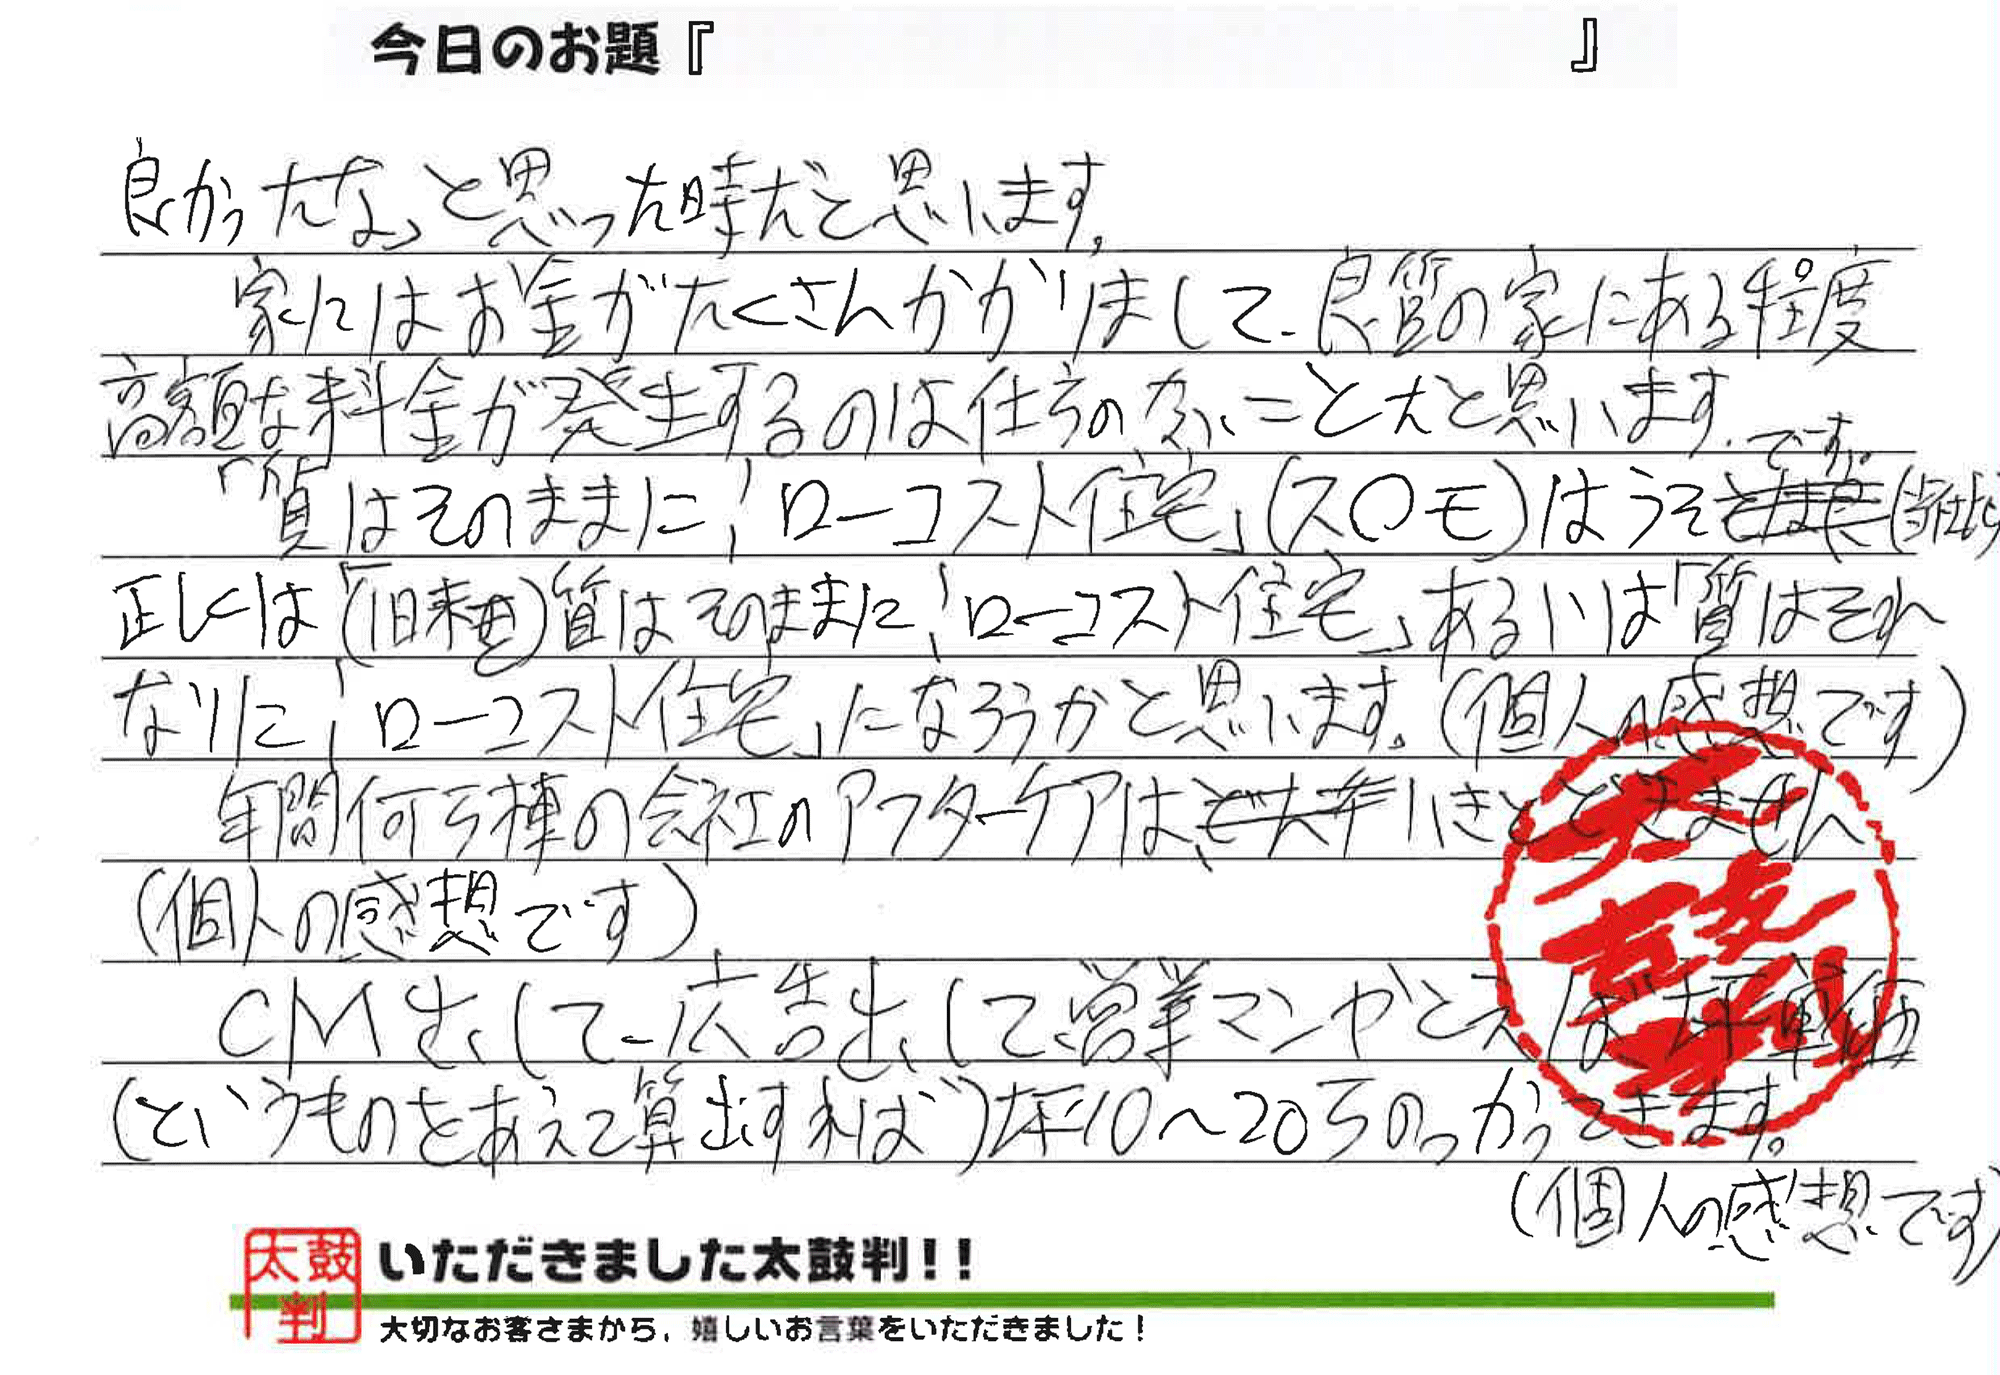 今日のお題『 』
良かったな」と思った時だと思います。
家にはお金がたくさんかかりまして、良質の家にある程度
高額な料金が発生するのは仕方のないことだと思います。
です。
「質はそのままに、ローコスト住宅」(ス〇モ)はうそ
正しくは「(旧来の)質はそのままに、ローコスト住宅」あるいは「質はそれ
なりに、ローコスト住宅」になろうかと思います。(個人の感想です)
年間何百棟の会社のアフターケアは、いきとどきません
(個人の感想です)
CM出して、広告出して、営業マンやとえば、坪単価
(というものをあえて算出すれば)坪10〜20万のっかってきます。
(個人の感想です)
太鼓判
太鼓判 いただきました太鼓判!!
大切なお客さまから、嬉しいお言葉をいただきました!